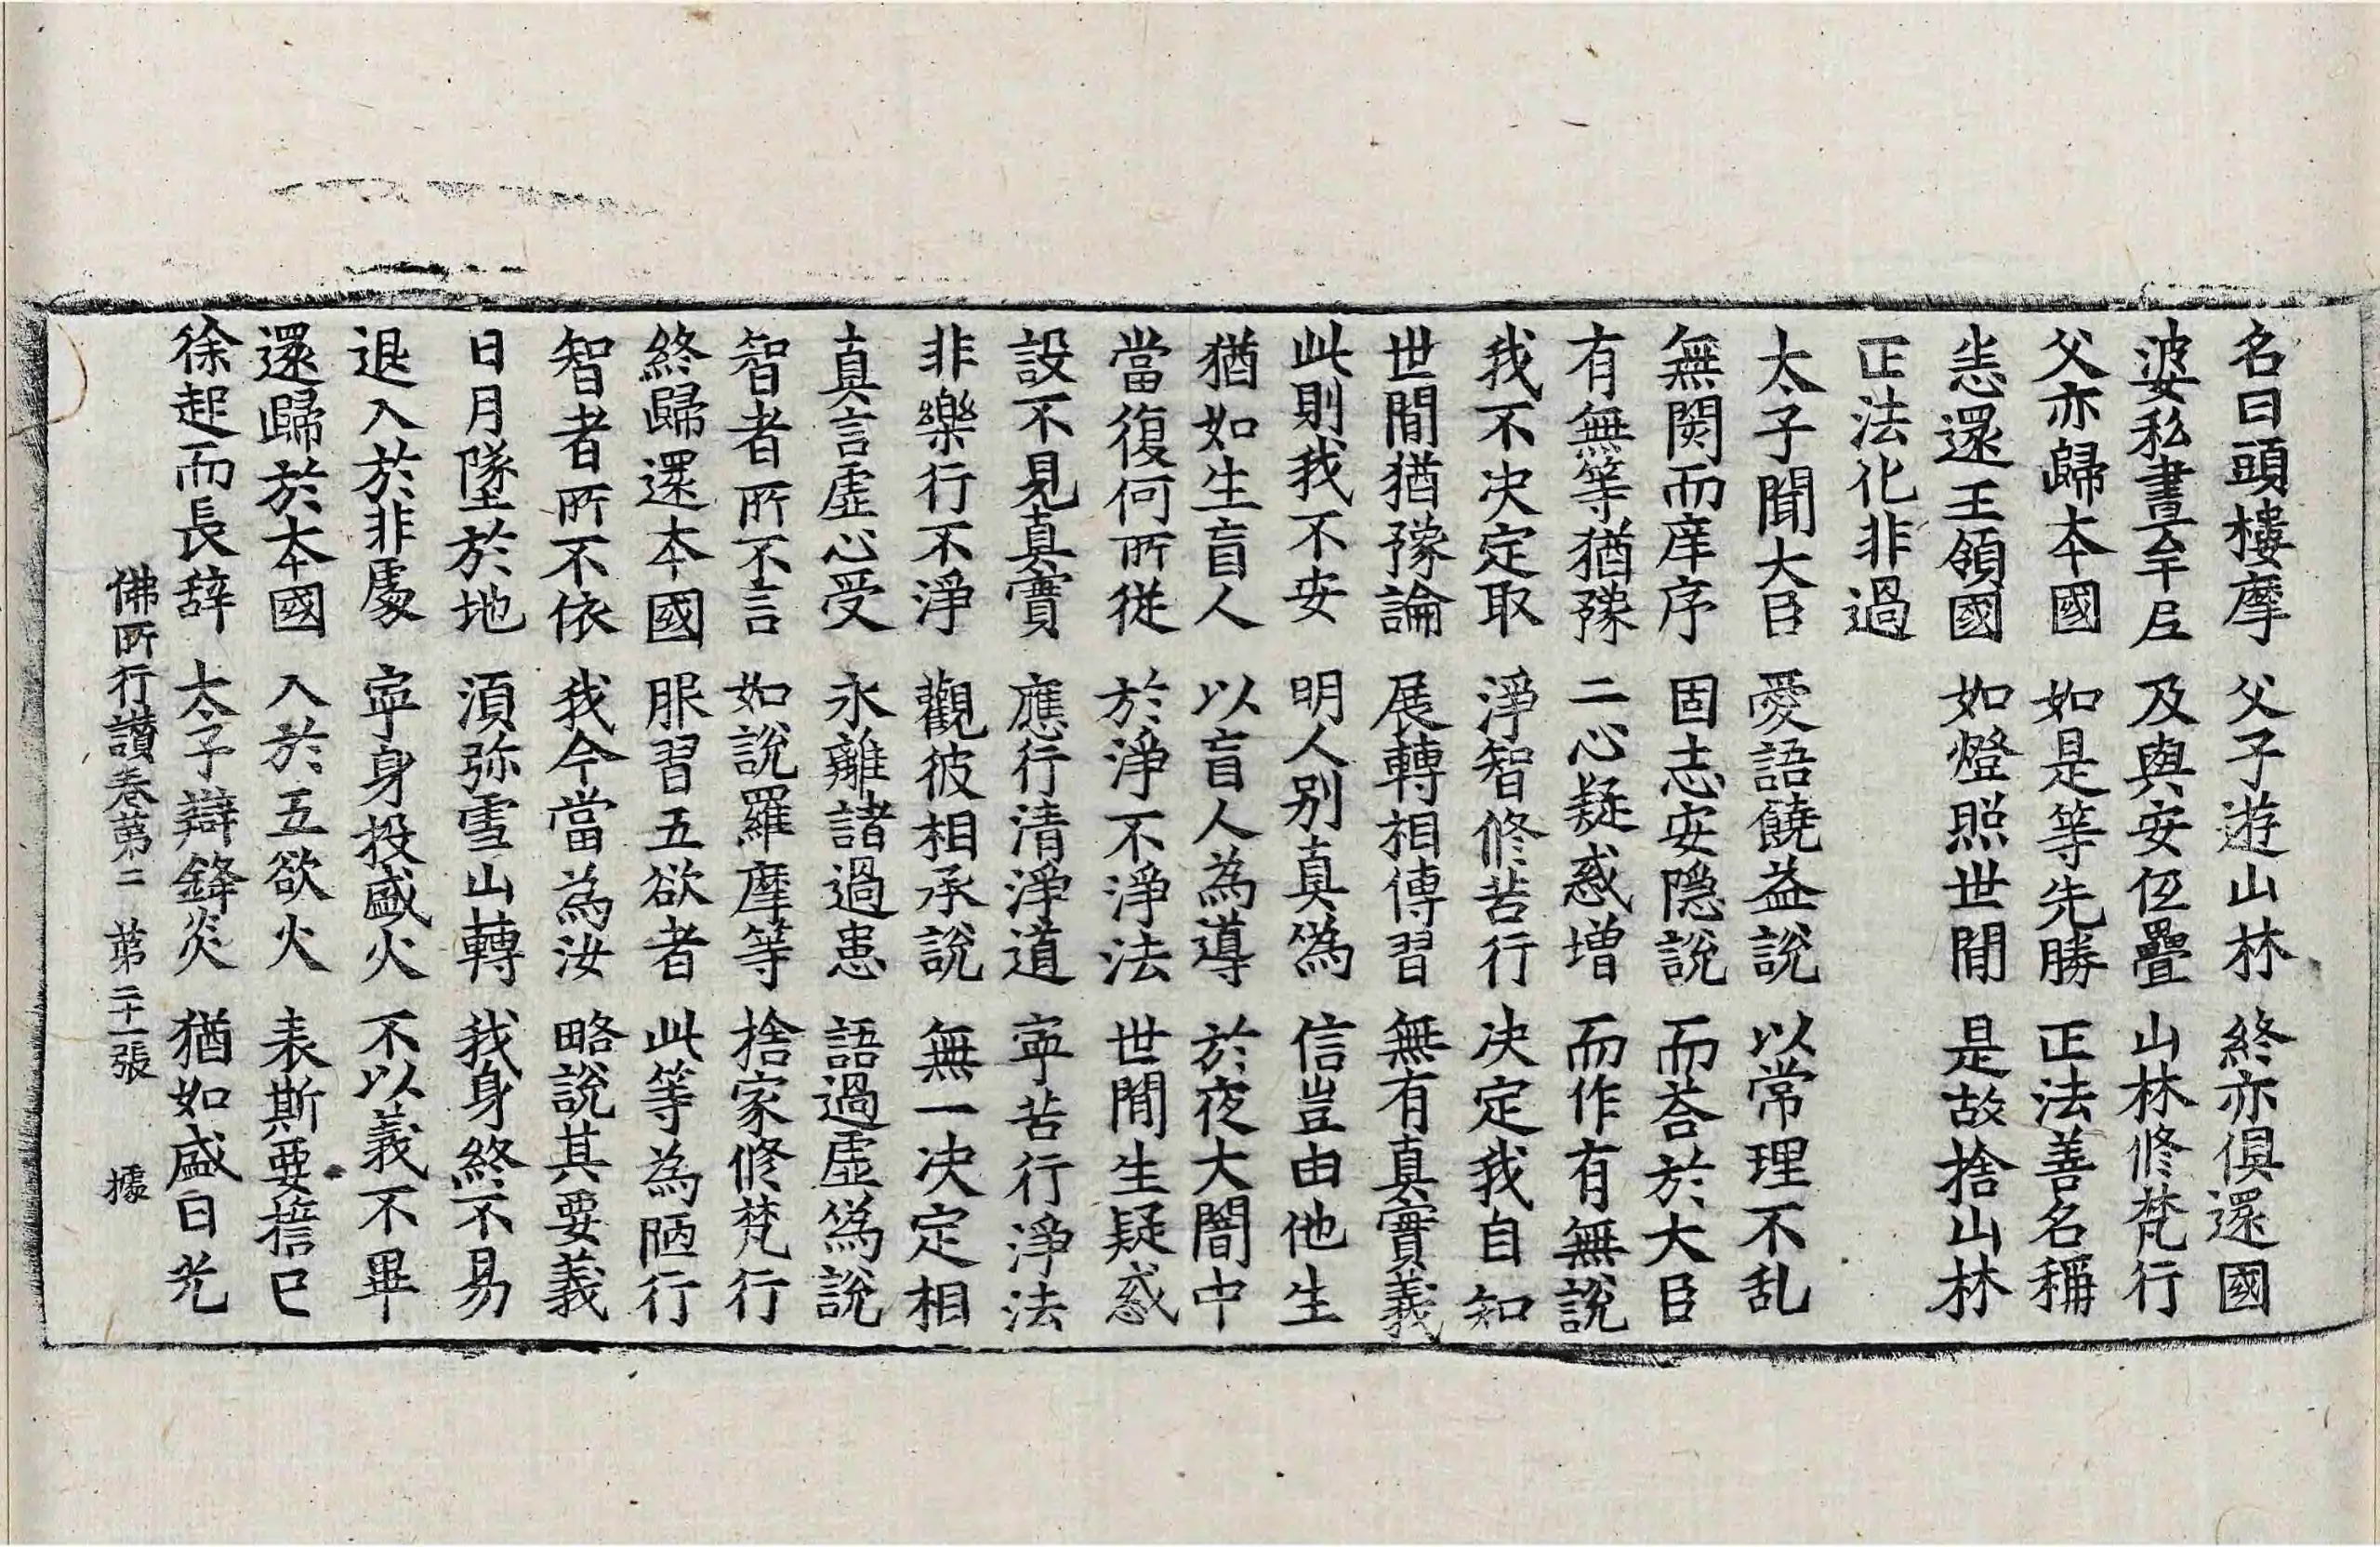 名曰頭樓摩 父子遊山林 終亦俱還國
婆私晝牟尼 及與安伍疊 山林修梵行
父亦歸本國 如是等先勝 正法善名稱
悉還王領國 如燈照世間 是故捨山林
正法化非過
太子聞大臣 愛語饒益說 以常理不乱
無閡而庠序 固志安隱說 而荅於大臣
有無等猶豫 二心疑惑增 而作有無說
我不决定取 淨智修苦行 决定我自知
世間猶豫論 展轉相傳習 無有真實義
此則我不安 明人別真偽 信豈由他生
猶如生盲人 以盲人為導 於夜大闇中
當復何所從 於淨不淨法 世間生疑惑
設不見真實 應行清淨道 寧苦行淨法
非樂行不淨 觀彼相承說 無一决定相
真言虛心受 永離諸過患 語過虛偽說
智者所不言 如說羅摩等 捨家修梵行
終歸還本國 服習五欲者 此等為陋行
智者所不依 我今當為汝 略說其要義
日月墜於地 須弥雪山轉 我身終不易
退入於非處 寧身投盛火 不以義不畢
還歸於本國 入於五欲火 表斯要擔已
徐起而長辞 太子辯鋒炎 猶如盛日光
佛所行讃卷第二 第二十一張 據